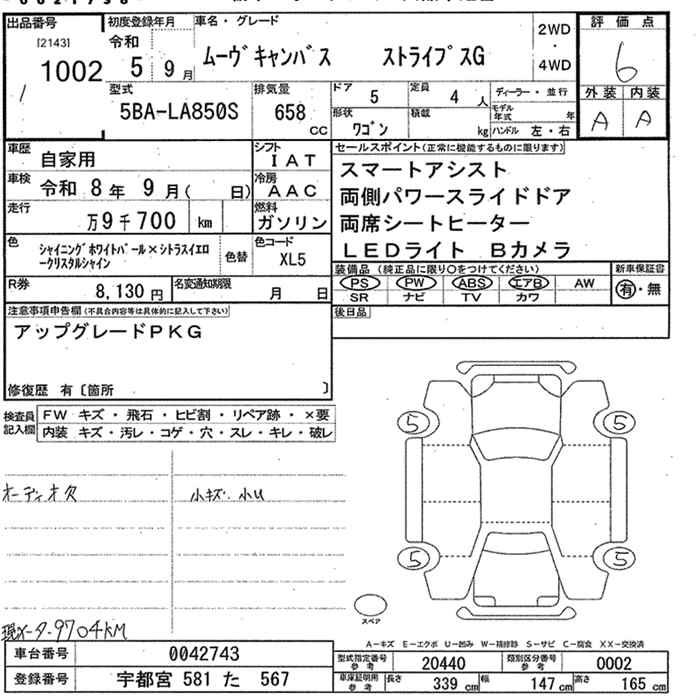 出品番号
[2143]
1002
初度登録年月
令和
5 9月
車名・グレード
ムーヴキャンバス ストライプスG
2WD
・
4WD
評価点
6
外装 内装
A A
型式
5BA-LA850S
排気量
658
cc
ドア
5
定員
4 人
ディーラー・並行
モデル年式 年
形状
ワゴン
積載
kg
ハンドル 左・右
車歴
自家用
シフト
IAT
車検
令和 8年 9月( 日)
冷房
AAC
走行
万9千700 km
燃料
ガソリン
色
シャイニングホワイトパール×シトラスイエロ
ークリスタルシャイン
色替
色コード
XL5
R券
8,130円
名変通知期限
月 日
セールスポイント(正常に機能するものに限ります)
スマートアシスト
両側パワースライドドア
両席シートヒーター
LEDライト Bカメラ
装備品 (純正品に限り○をつけてください)
PS PW ABS エアB AW
SR ナビ TV カワ
新車保証書
有・無
後日品
注意事項申告欄(不具合内容等は具体的に記入して下さい)
アップグレードPKG
修復歴 有〔箇所 〕
検査員
記入欄
FW キズ・飛石・ヒビ割・リペア跡・×要
内装 キズ・汚レ・コゲ・穴・スレ・キレ・破レ
オーディオ欠
小キズ.小U
現メーター9704KM
5 5
5 5
スペア
A-キズ E-エクボ U-凹み W-補修跡 S-サビ C-腐食 XX-交換済
車台番号
0042743
登録番号
宇都宮 581 た 567
型式指定番号
参考
20440
類別区分番号
参考
0002
車庫証明用
参考
長さ
339 cm
幅
147 cm
高さ
165 cm